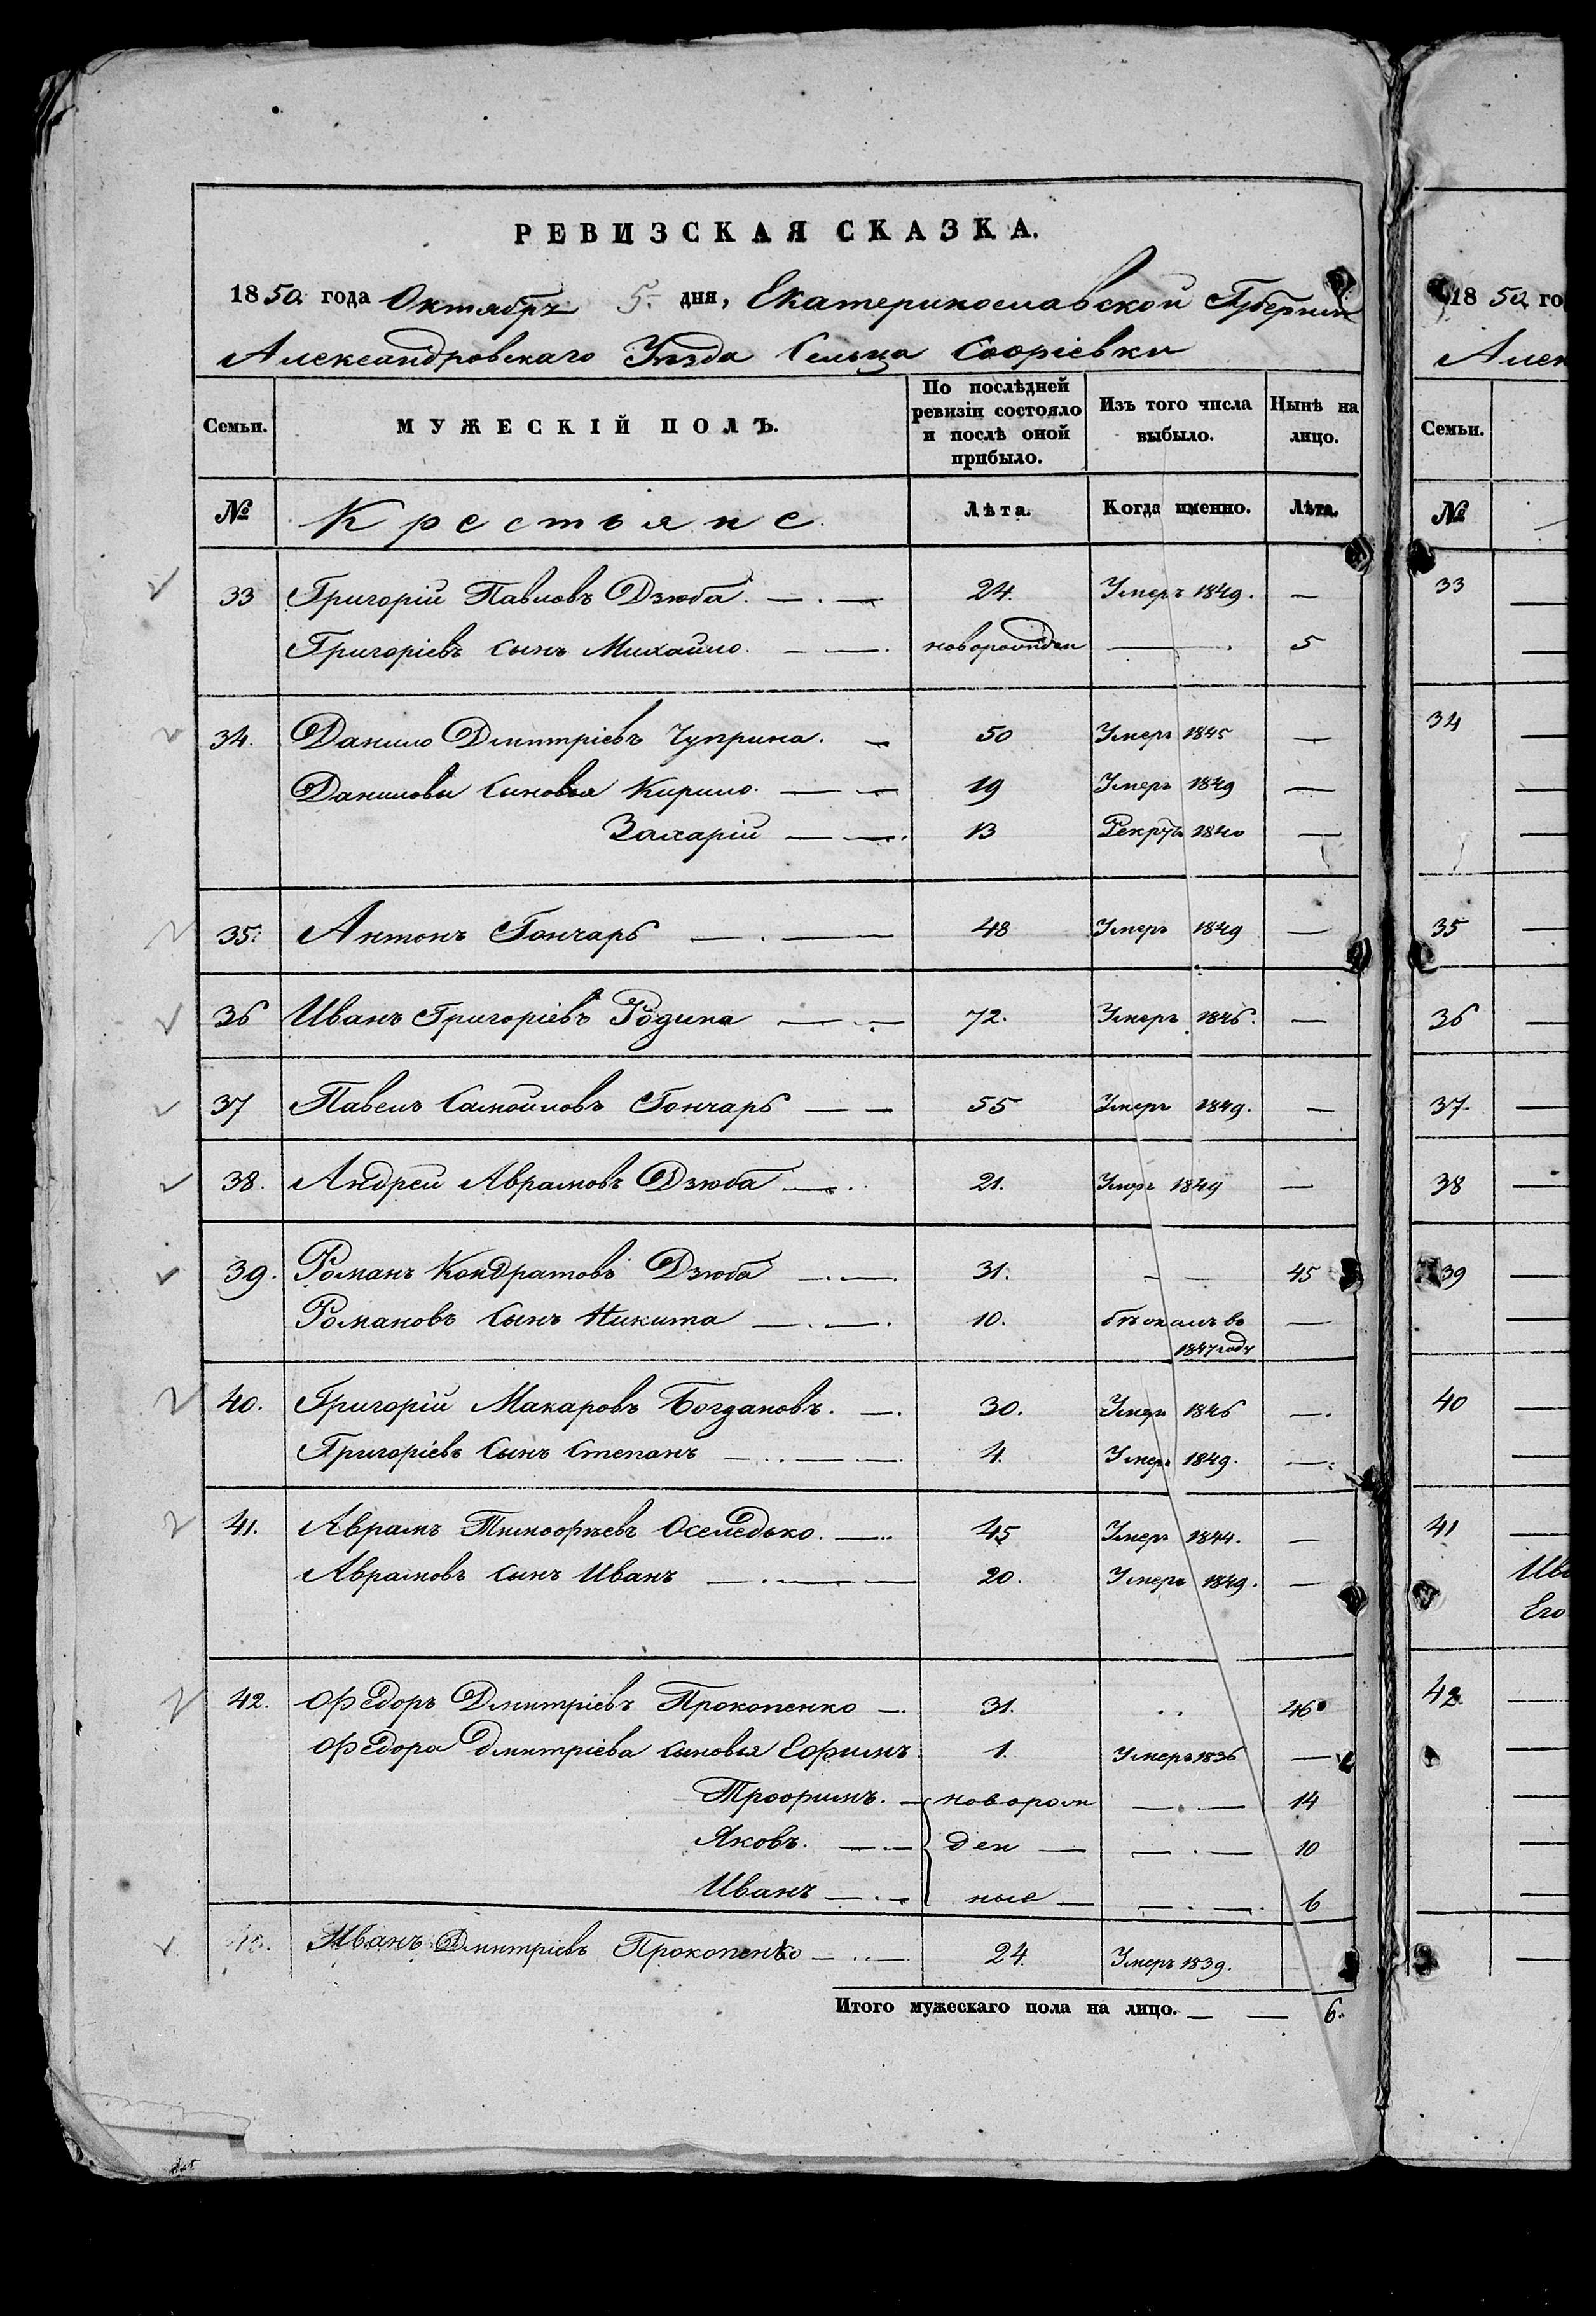 РЕВИЗСКАЯ СКАЗКА.
1850 года Октября 5 дня, Екатеринославской Губернии
Александровскаго Уѣзда Сельца Софіевки
Семьи. МУЖЕСКІЙ ПОЛЪ. По послѣдней ревизіи состояло и послѣ оной прибыло. Изъ того числа выбыло. Нынѣ на лицо.
№ Крестьяне. Лѣта. Когда именно. Лѣта.
33 Григорій Павловъ Дзюба. — . — 24. Умеръ 1849. —
Григоріевъ сынъ Михайло. — — . новорожден — . 5
34. Данило Дмитріевъ Чуприна. — 50 Умеръ 1845 —
Даниловы сыновья Кирило. — — 19 Умеръ 1849 —
Захарій — — . 13 Рекрутъ 1840 —
35. Антонъ Гончаръ — . — 48 Умеръ 1849 —
36 Иванъ Григоріевъ Родина — . — 72. Умеръ 1846. —
37 Павелъ Самойловъ Гончаръ — — 55 Умеръ 1849. —
38. Андрей Аврамовъ Дзюба — . 21. Умеръ 1849 —
39. Романъ Кондратовъ Дзюба — . — 31. — — 45
Романовъ сынъ Никита — . — . 10. бѣжалъ въ —
1847 году
40. Григорій Макаровъ Богдановъ. — . 30. Умеръ 1846 — .
Григоріевъ сынъ Степанъ — . . — — 4. Умеръ 1849. — .
41. Аврамъ Тимофѣевъ Оселедько. — .. 45 Умеръ 1844. —
Аврамовъ сынъ Иванъ — . — — 20. Умеръ 1849. —
42. Федоръ Дмитріевъ Прокопенко — . 31. . . 46
Федора Дмитріева сыновья Ефимъ. 1. Умеръ 1836 —
Трофимъ. — новорож — . — 14
Яковъ. — — ден — — . — 10
Иванъ — . — ные — — . — . 6
Иванъ Дмитріевъ Прокопенко — . . — 24. Умеръ 1839.
Итого мужескаго пола на лицо. — — 6.
18 50 го
Алек
Семьи.
№
33
34
35
36
37.
38
39
40
41
Ива
Его
42